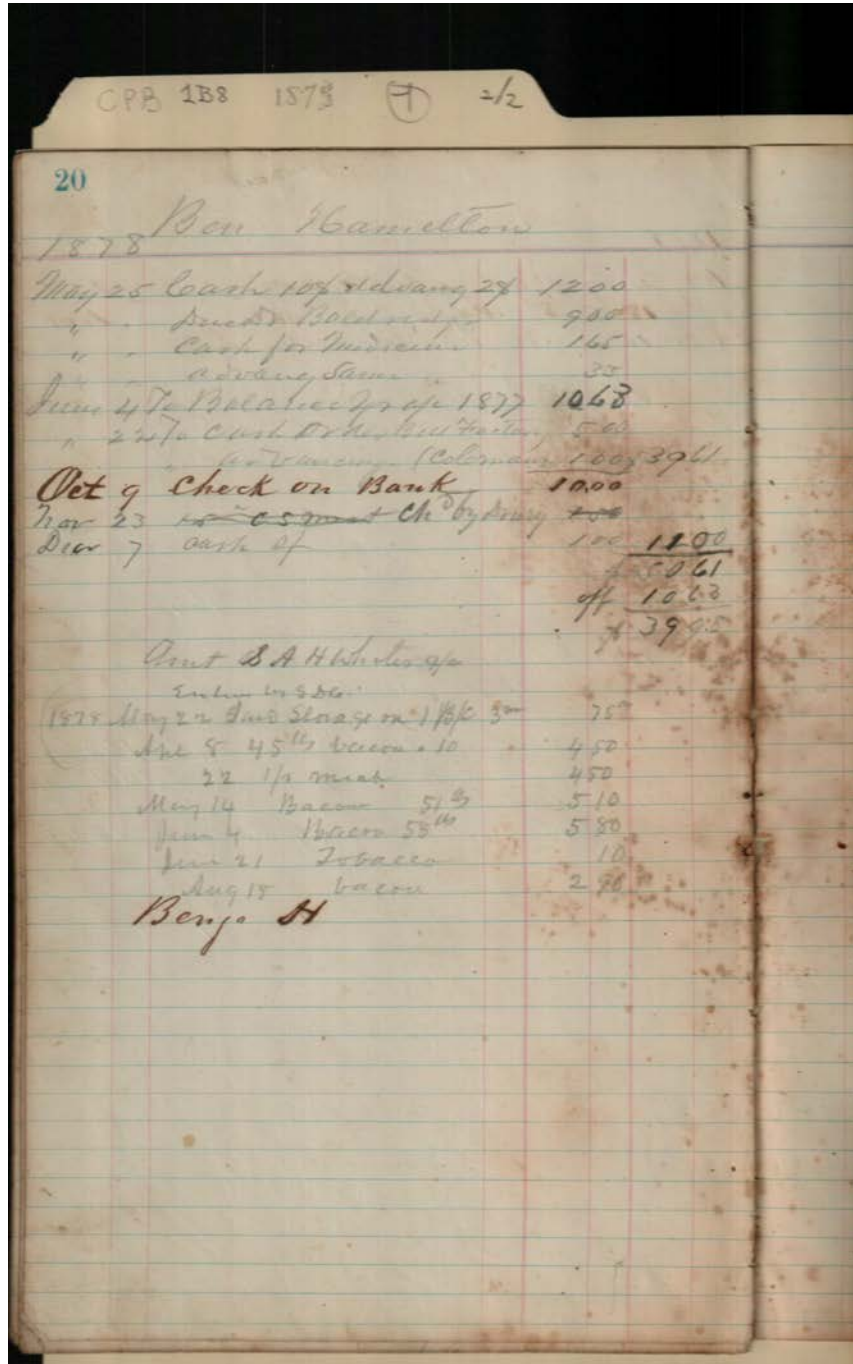 CPB 1B8 1879 1 2/2
20
Ben Hamelton
1878
May 25 Cash 10$ & Advang 2$ 12 00
" " Due Dr 9 00
" " Cash for Medicin 1 65
" " advang Same 33
June 4 To Balance 1877 10 68
" 22 To Cash 5 00
" Advancing (Coleman 1 00 39 61
Oct 9 Check on Bank 10.00
Nov 23 Chd by Drury
Decr 7 cash 1 00 11 00
50 61
off 10 68
$ 39 95
Amt S A H
1878 May 22 Storage on 1 B/C 75
Apl 8 45 lbs bacon 10 4 50
22 meat 4 50
May 14 Bacon 51 lbs 5 10
June 4 Bacon 58 lbs 5 80
June 21 Tobacco 10
Aug 18 bacon 2 90
Benj. H